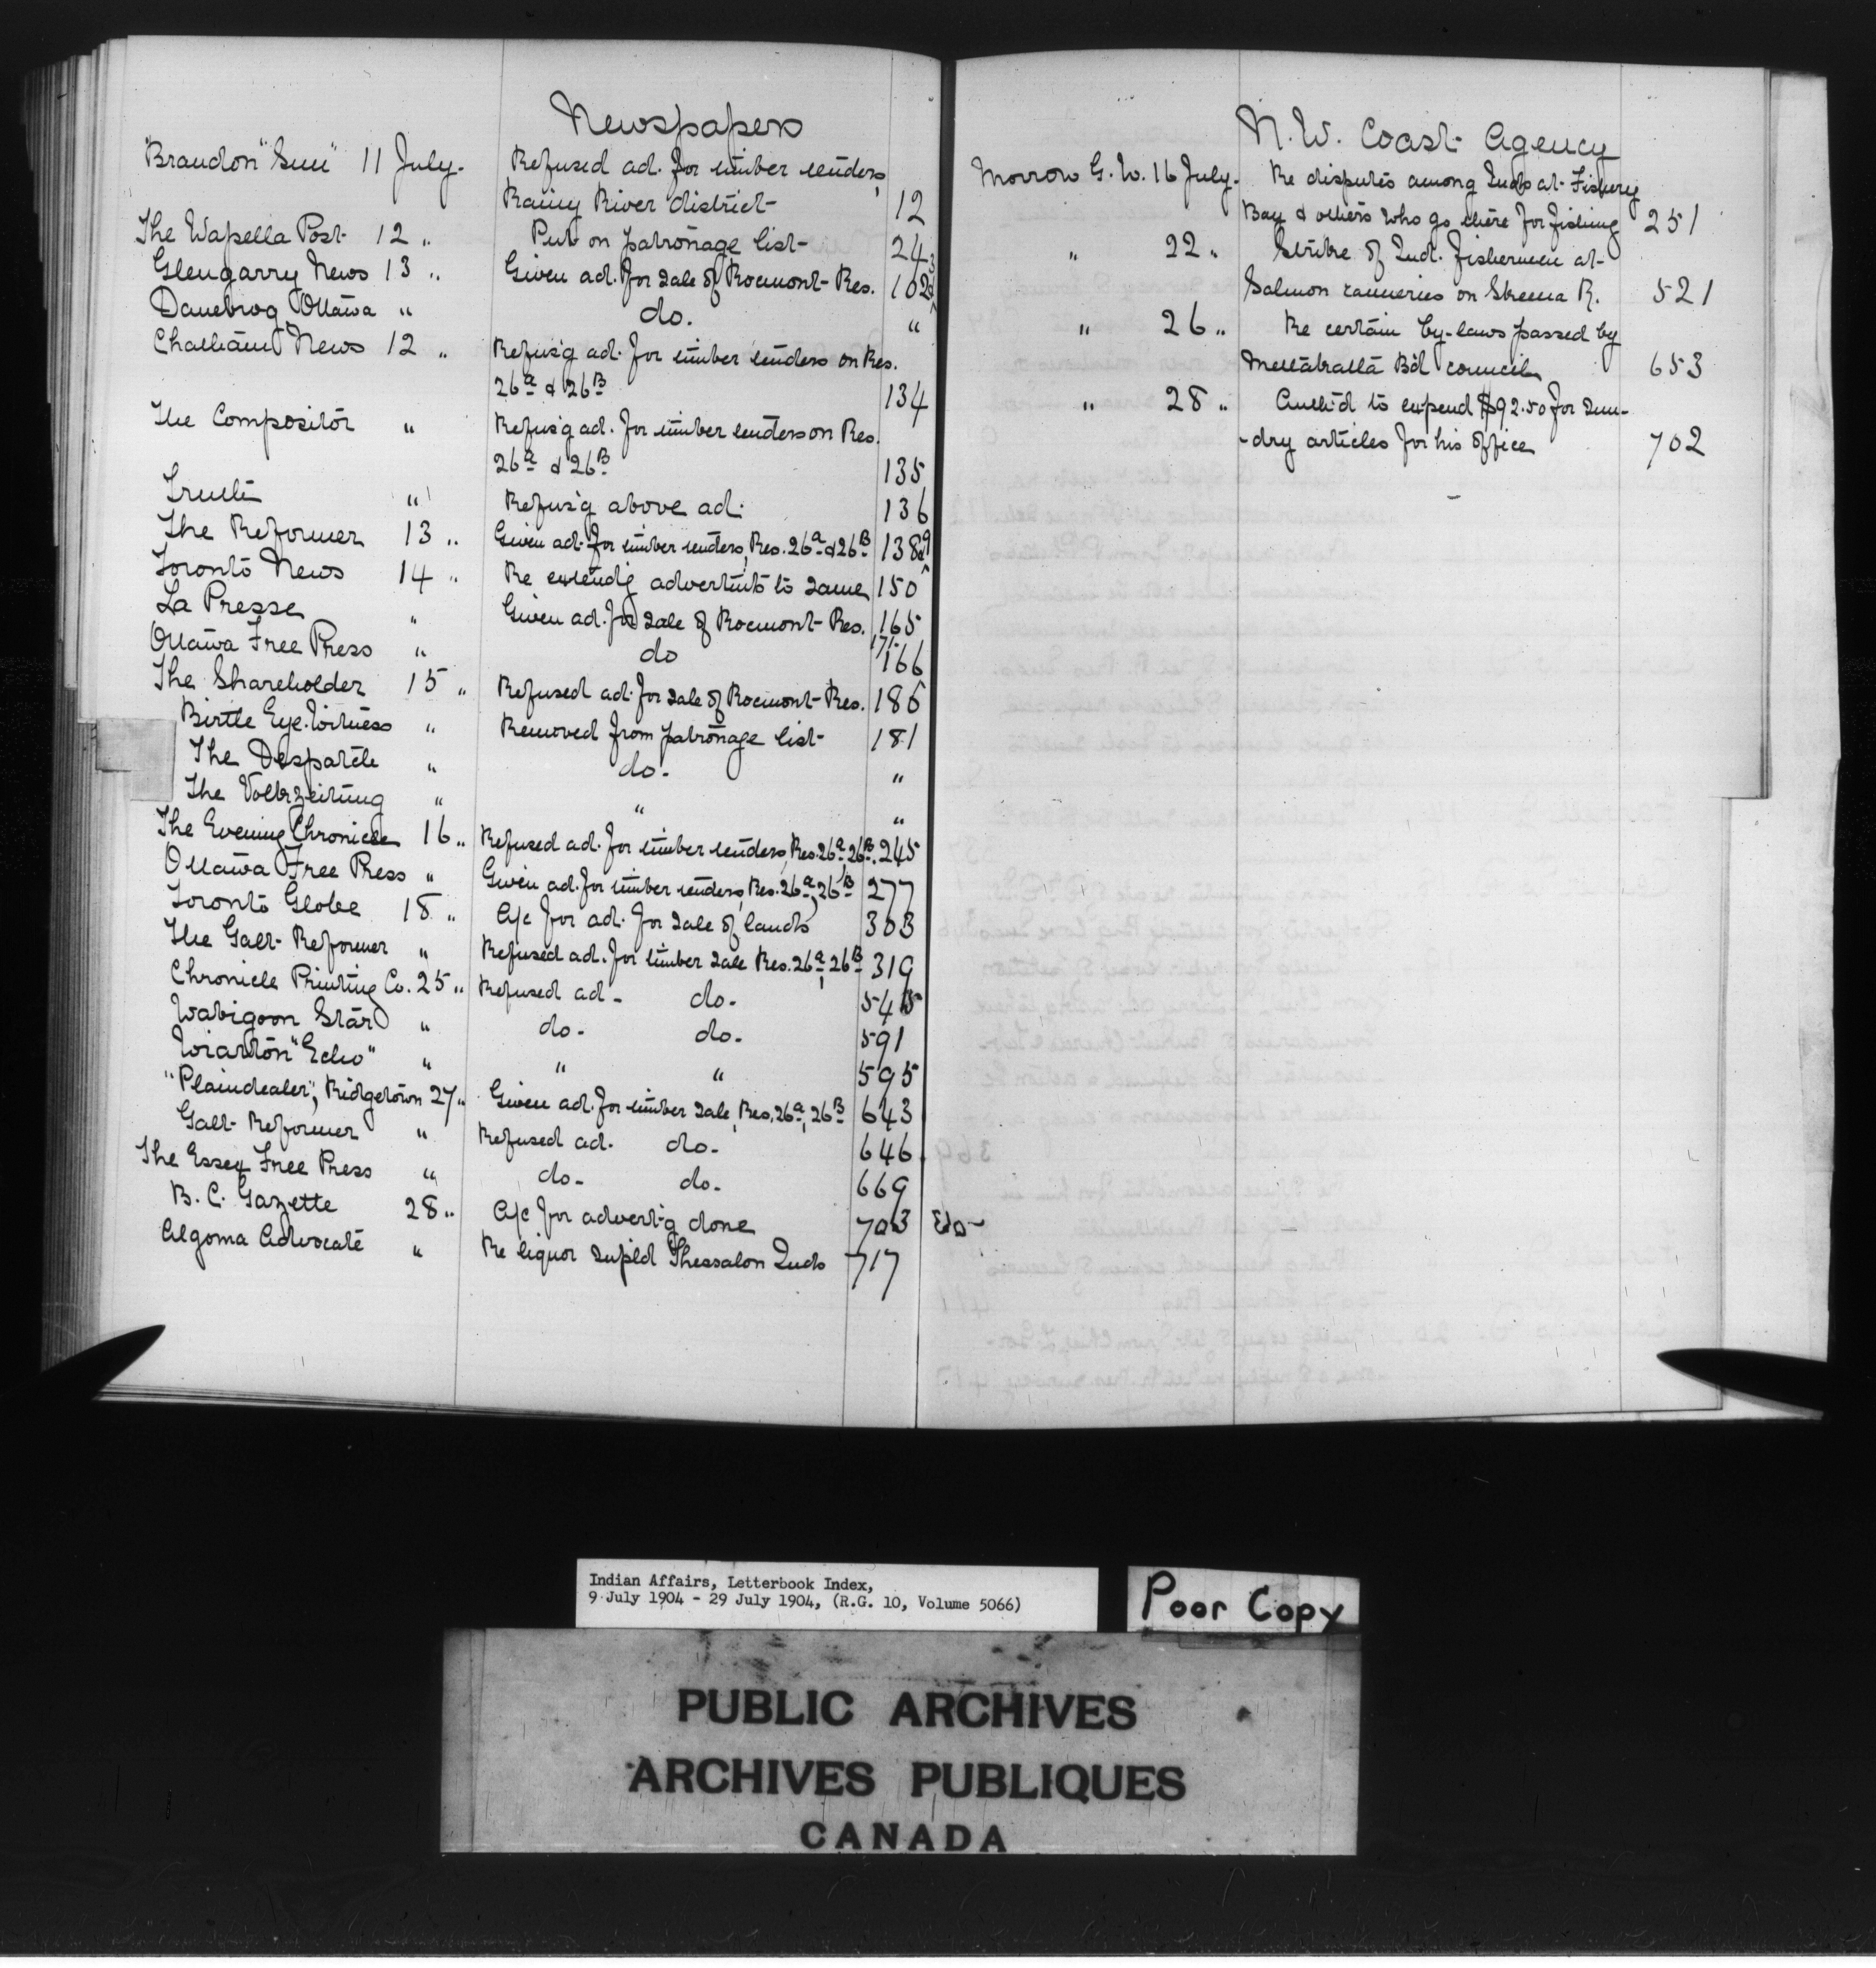 Newspapers
"Brandon "Sun" 11 July. Refused ad. for timber tenders,
Rainy River district 12
The Wapella Post 12 " Put on patronage list 24
Glengarry News 13 " Given ad. for sale of Rocmont Res. 102
Danebrog Ottawa " do. "
Chatham News 12 " Refus'g ad. for timber tenders on Res.
26a & 26B 134
The Compositor " Refus'g ad. for timber tenders on Res.
26a & 26B 135
Truth " Refus'g above ad. 136
The Reformer 13 " Given ad. for timber tenders, Res. 26a & 26B 138
Toronto News 14 " Re extend'g advertmts to same 150
La Presse " Given ad. for sale of Rocmont Res. 165
Ottawa Free Press " do 171- 166
The Shareholder 15 " Refused ad. for sale of Rocmont Res. 186
Birtle Eye-Witness " Removed from patronage list 181
The Despatch " do. "
The Volkszeitung " " "
The Evening Chronicle 16 " Refused ad. for timber tenders, Res. 26a, 26B. 245
Ottawa Free Press " Given ad. for timber tenders, Res. 26a, 26B 277
Toronto Globe 18 " A/c for ad. for sale of lands 303
The Galt Reformer " Refused ad. for timber sale Res. 26a, 26B 319
Chronicle Printing Co. 25 " Refused ad - do - 545
Wabigoon Star " do - do - 591
Wiarton "Echo" " " " 595
"Plaindealer", Ridgetown 27 " Given ad. for timber sale, Res. 26a, 26B 643
Galt Reformer " Refused ad. do - 646
The Essex Free Press " do - do - 669
B. C. Gazette 28 " A/c for advert-g done 703
Algoma Advocate " Re liquor supld Thessalon Inds 717
N. W. Coast Agency
Morrow G. W. 16 July. Re disputes among Inds at Fishery
Bay & others who go there for fishing 251
" 22 " Strike of Ind. fishermen at
Salmon canneries on Skeena R. 521
" 26 " Re certain by-laws passed by
Metlakatla Bd council 653
" 28 " Auth'd to expend $92.50 for sun-
-dry articles for his office 702
Indian Affairs, Letterbook Index,
9 July 1904 - 29 July 1904, (R.G. 10, Volume 5066)
Poor Copy
PUBLIC ARCHIVES
ARCHIVES PUBLIQUES
CANADA